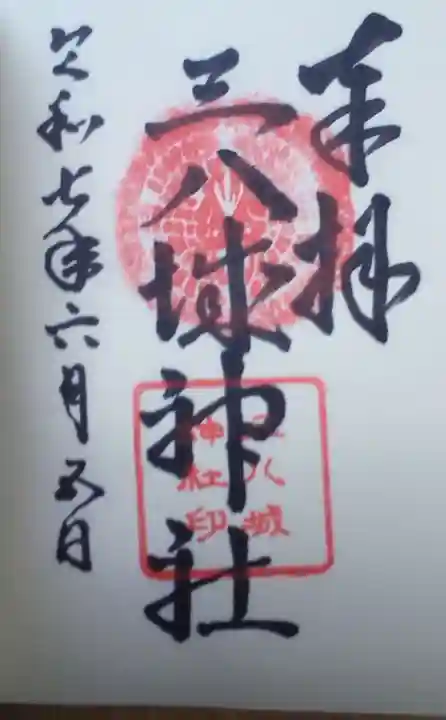 奉拝
三八城神社
三八城
神社印
令和七年六月五日